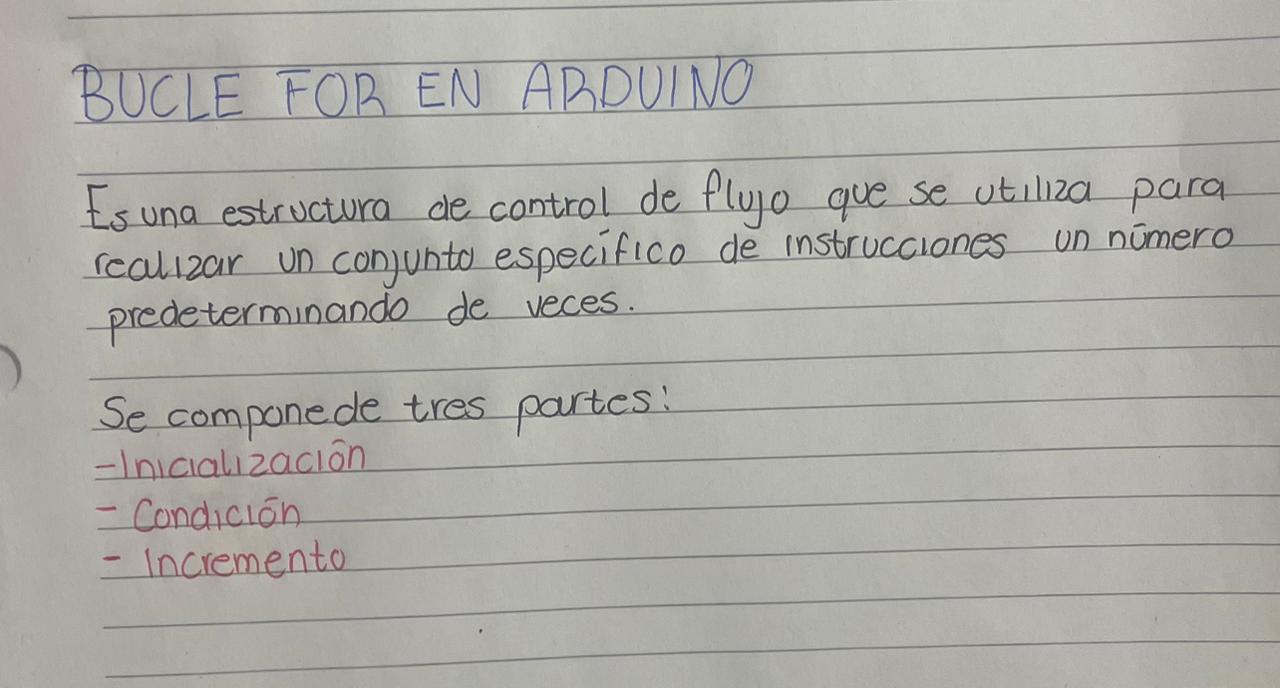 BUCLE FOR EN ARDUINO
Es una estructura de control de flujo que se utiliza para
realizar un conjunto específico de instrucciones un número
predeterminando de veces.
Se compone de tres partes:
-Inicialización
- Condición
- Incremento